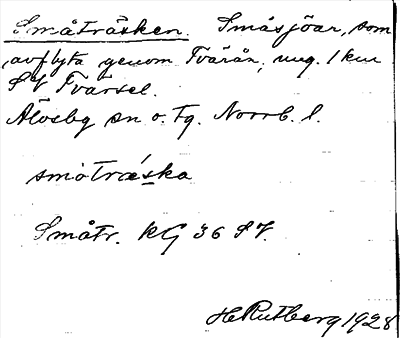 Småträsken. Småsjöar, som
avflyta genom Tvärån, ung. 1 km
SV Tvärsel.
Älvsby sn o. tg. Norrb. l.
småtrǽska
Småtr. KG 36 SV.
H Rutberg 1928